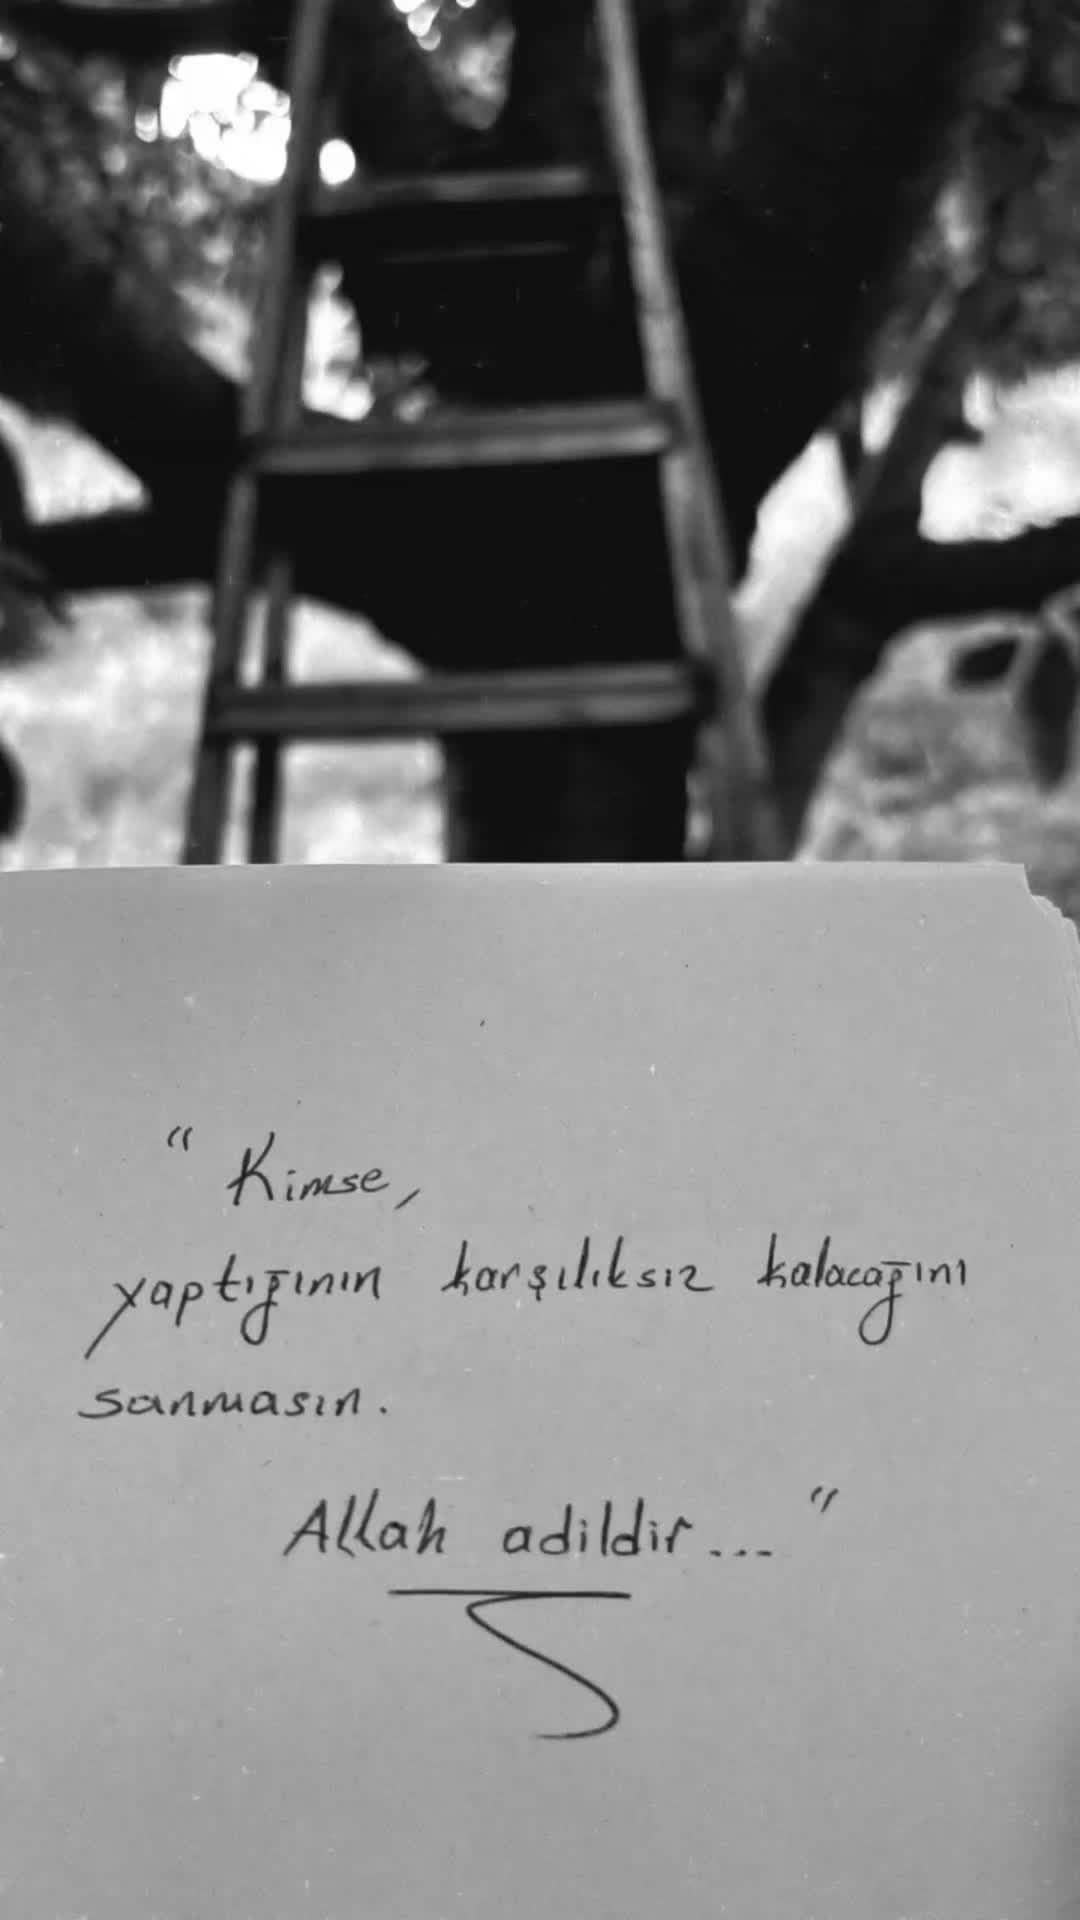 “Kimse,
yaptığının karşılıksız kalacağını
sanmasın.
Allah adildir...”